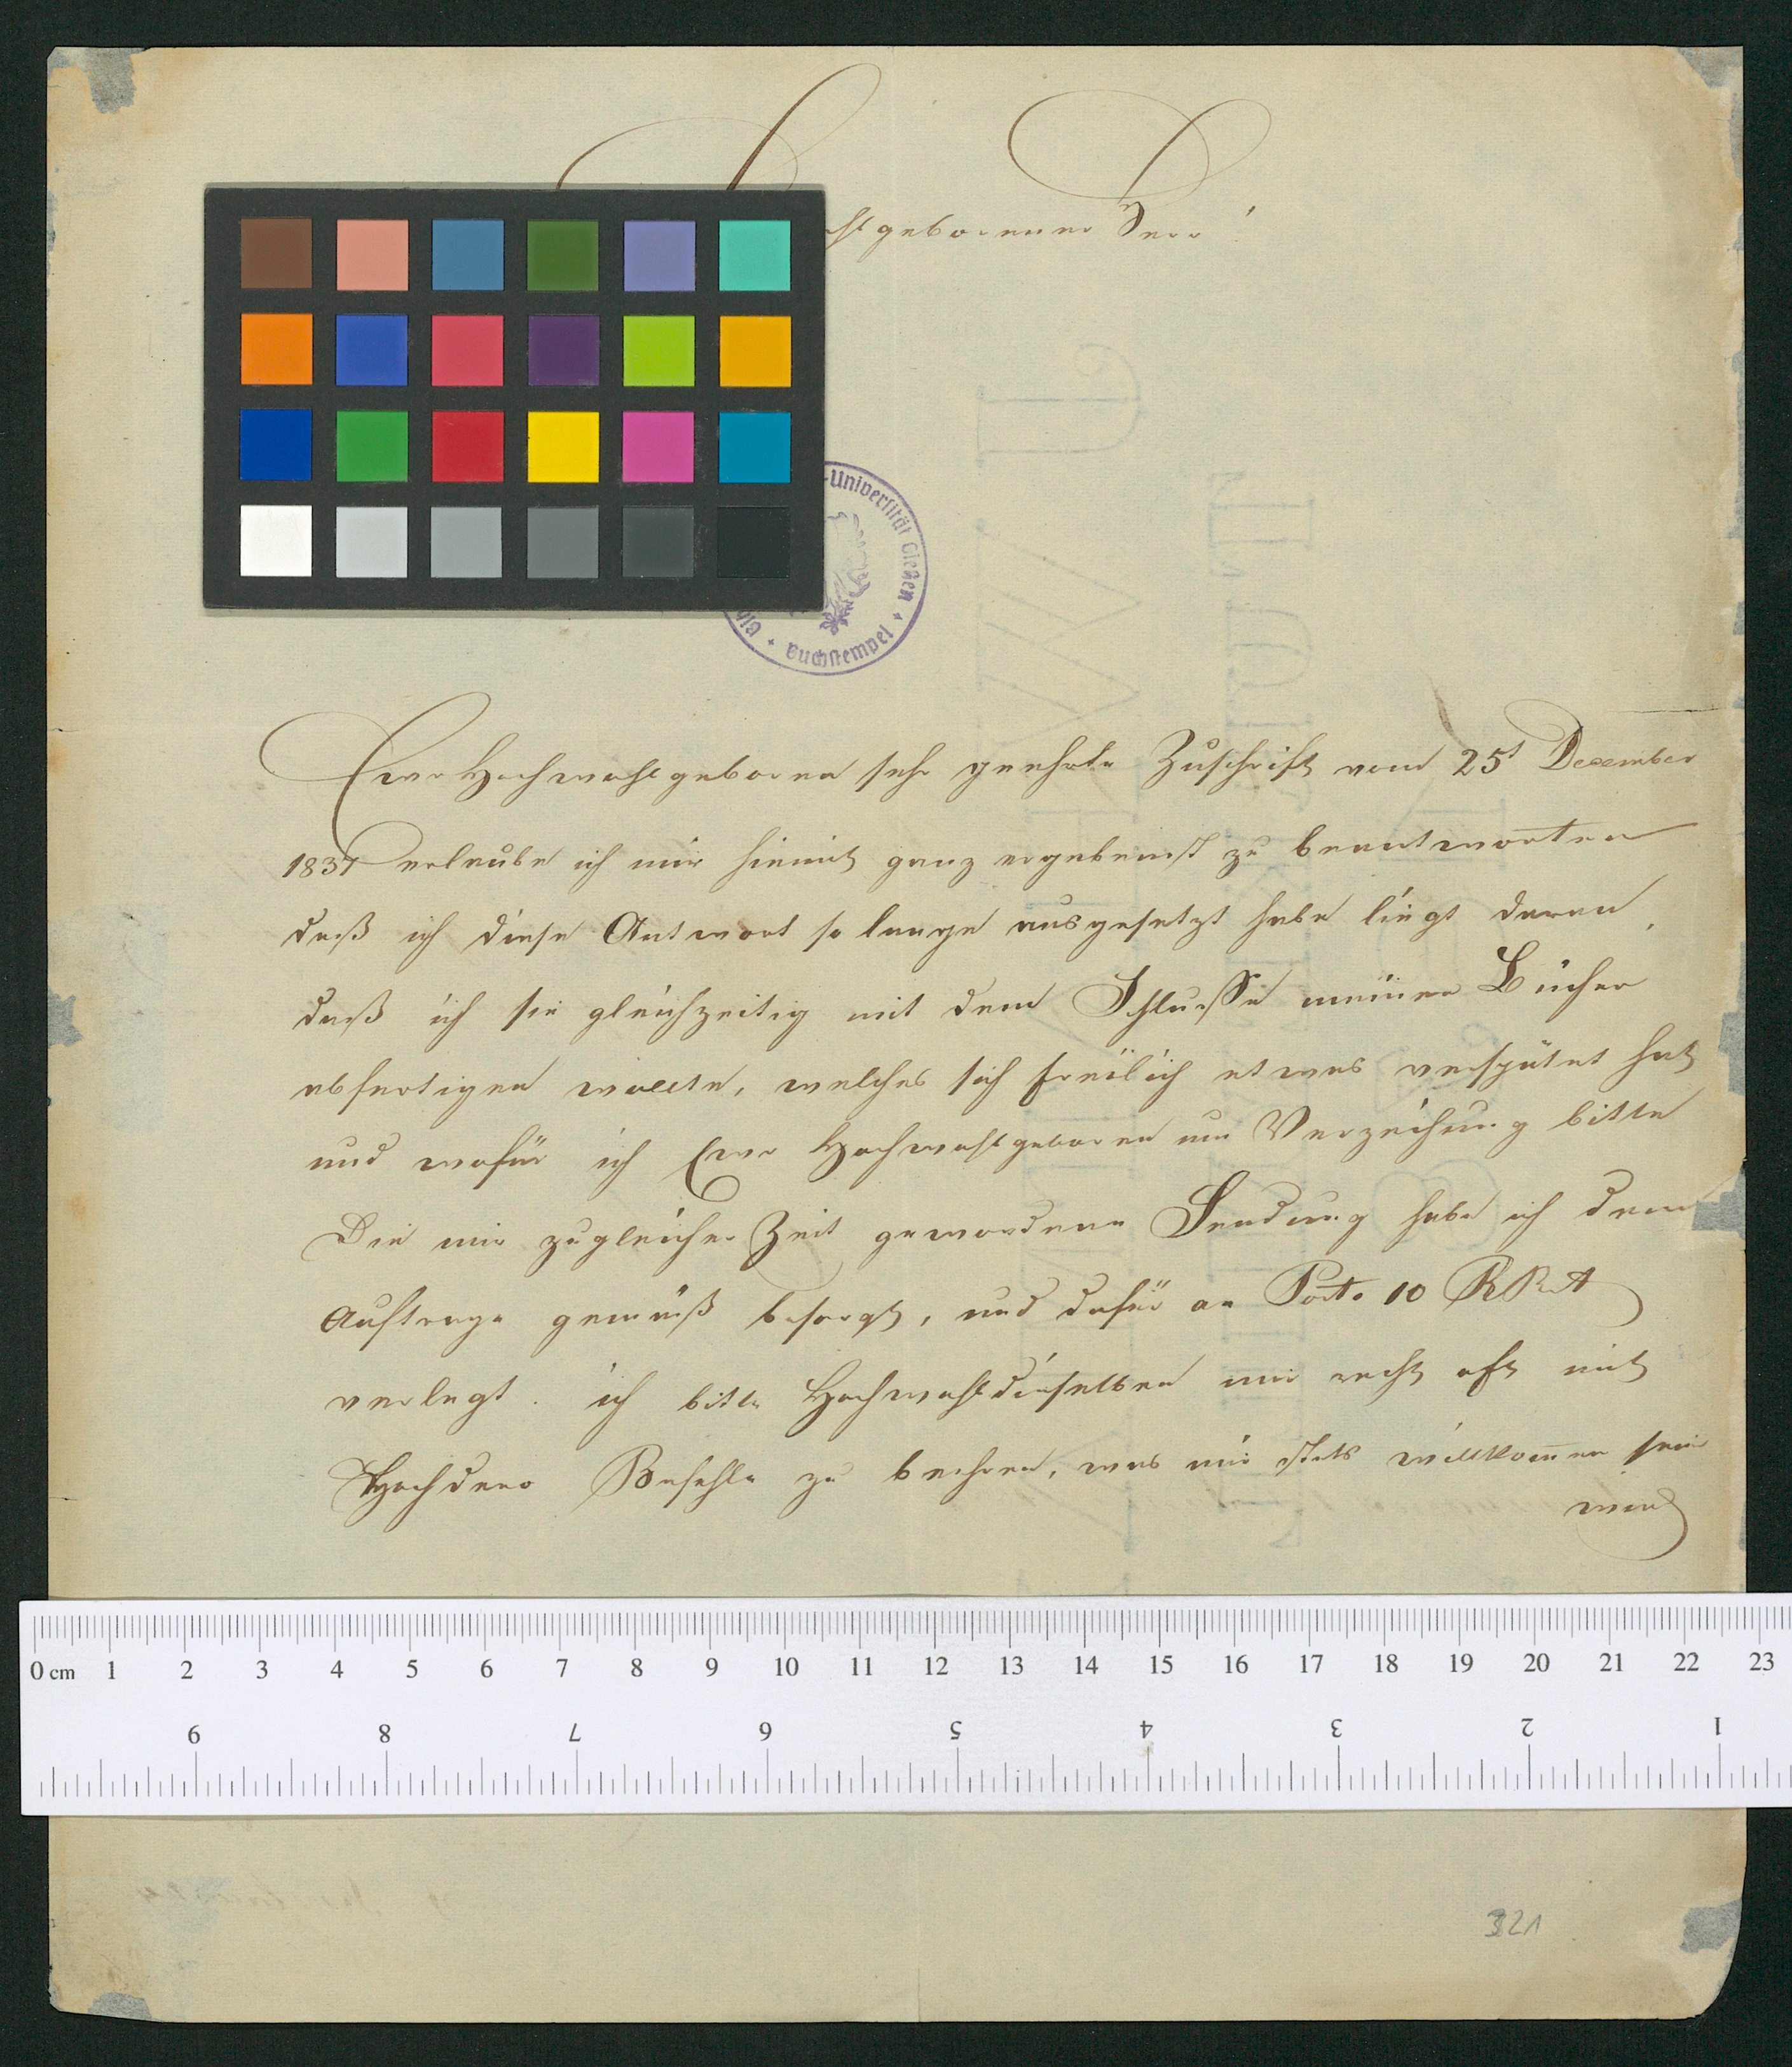 geborener Herr!
-Universität Gießen
Buchstempel
Ewr Hochwohlgeboren sehr geehrte Zuschrift vom 25t December
1837 erlaube ich mir hiemit ganz ergebenst zu beantworten
daß ich diese Antwort so lange ausgesetzt habe liegt daran,
daß ich sie gleichzeitig mit dem Schlusse meiner Bücher
abfertigen wollte, welches sich freilich etwas verspätet hat
und wofür ich Ewr Hochwohlgeboren um Verzeihung bitte
Die mir zugleicher Zeit gewordene Sendung habe ich dem
Auftrage gemäß besorgt, und dafür an Porto 10
verlegt. ich bitte Hochwohldieselben mir recht oft mit
Hochdero Befehle zu beehren, was mir stets willkomen sein
wird
0 cm 1 2 3 4 5 6 7 8 9 10 11 12 13 14 15 16 17 18 19 20 21 22 23
9 8 7 6 5 4 3 2 1
321